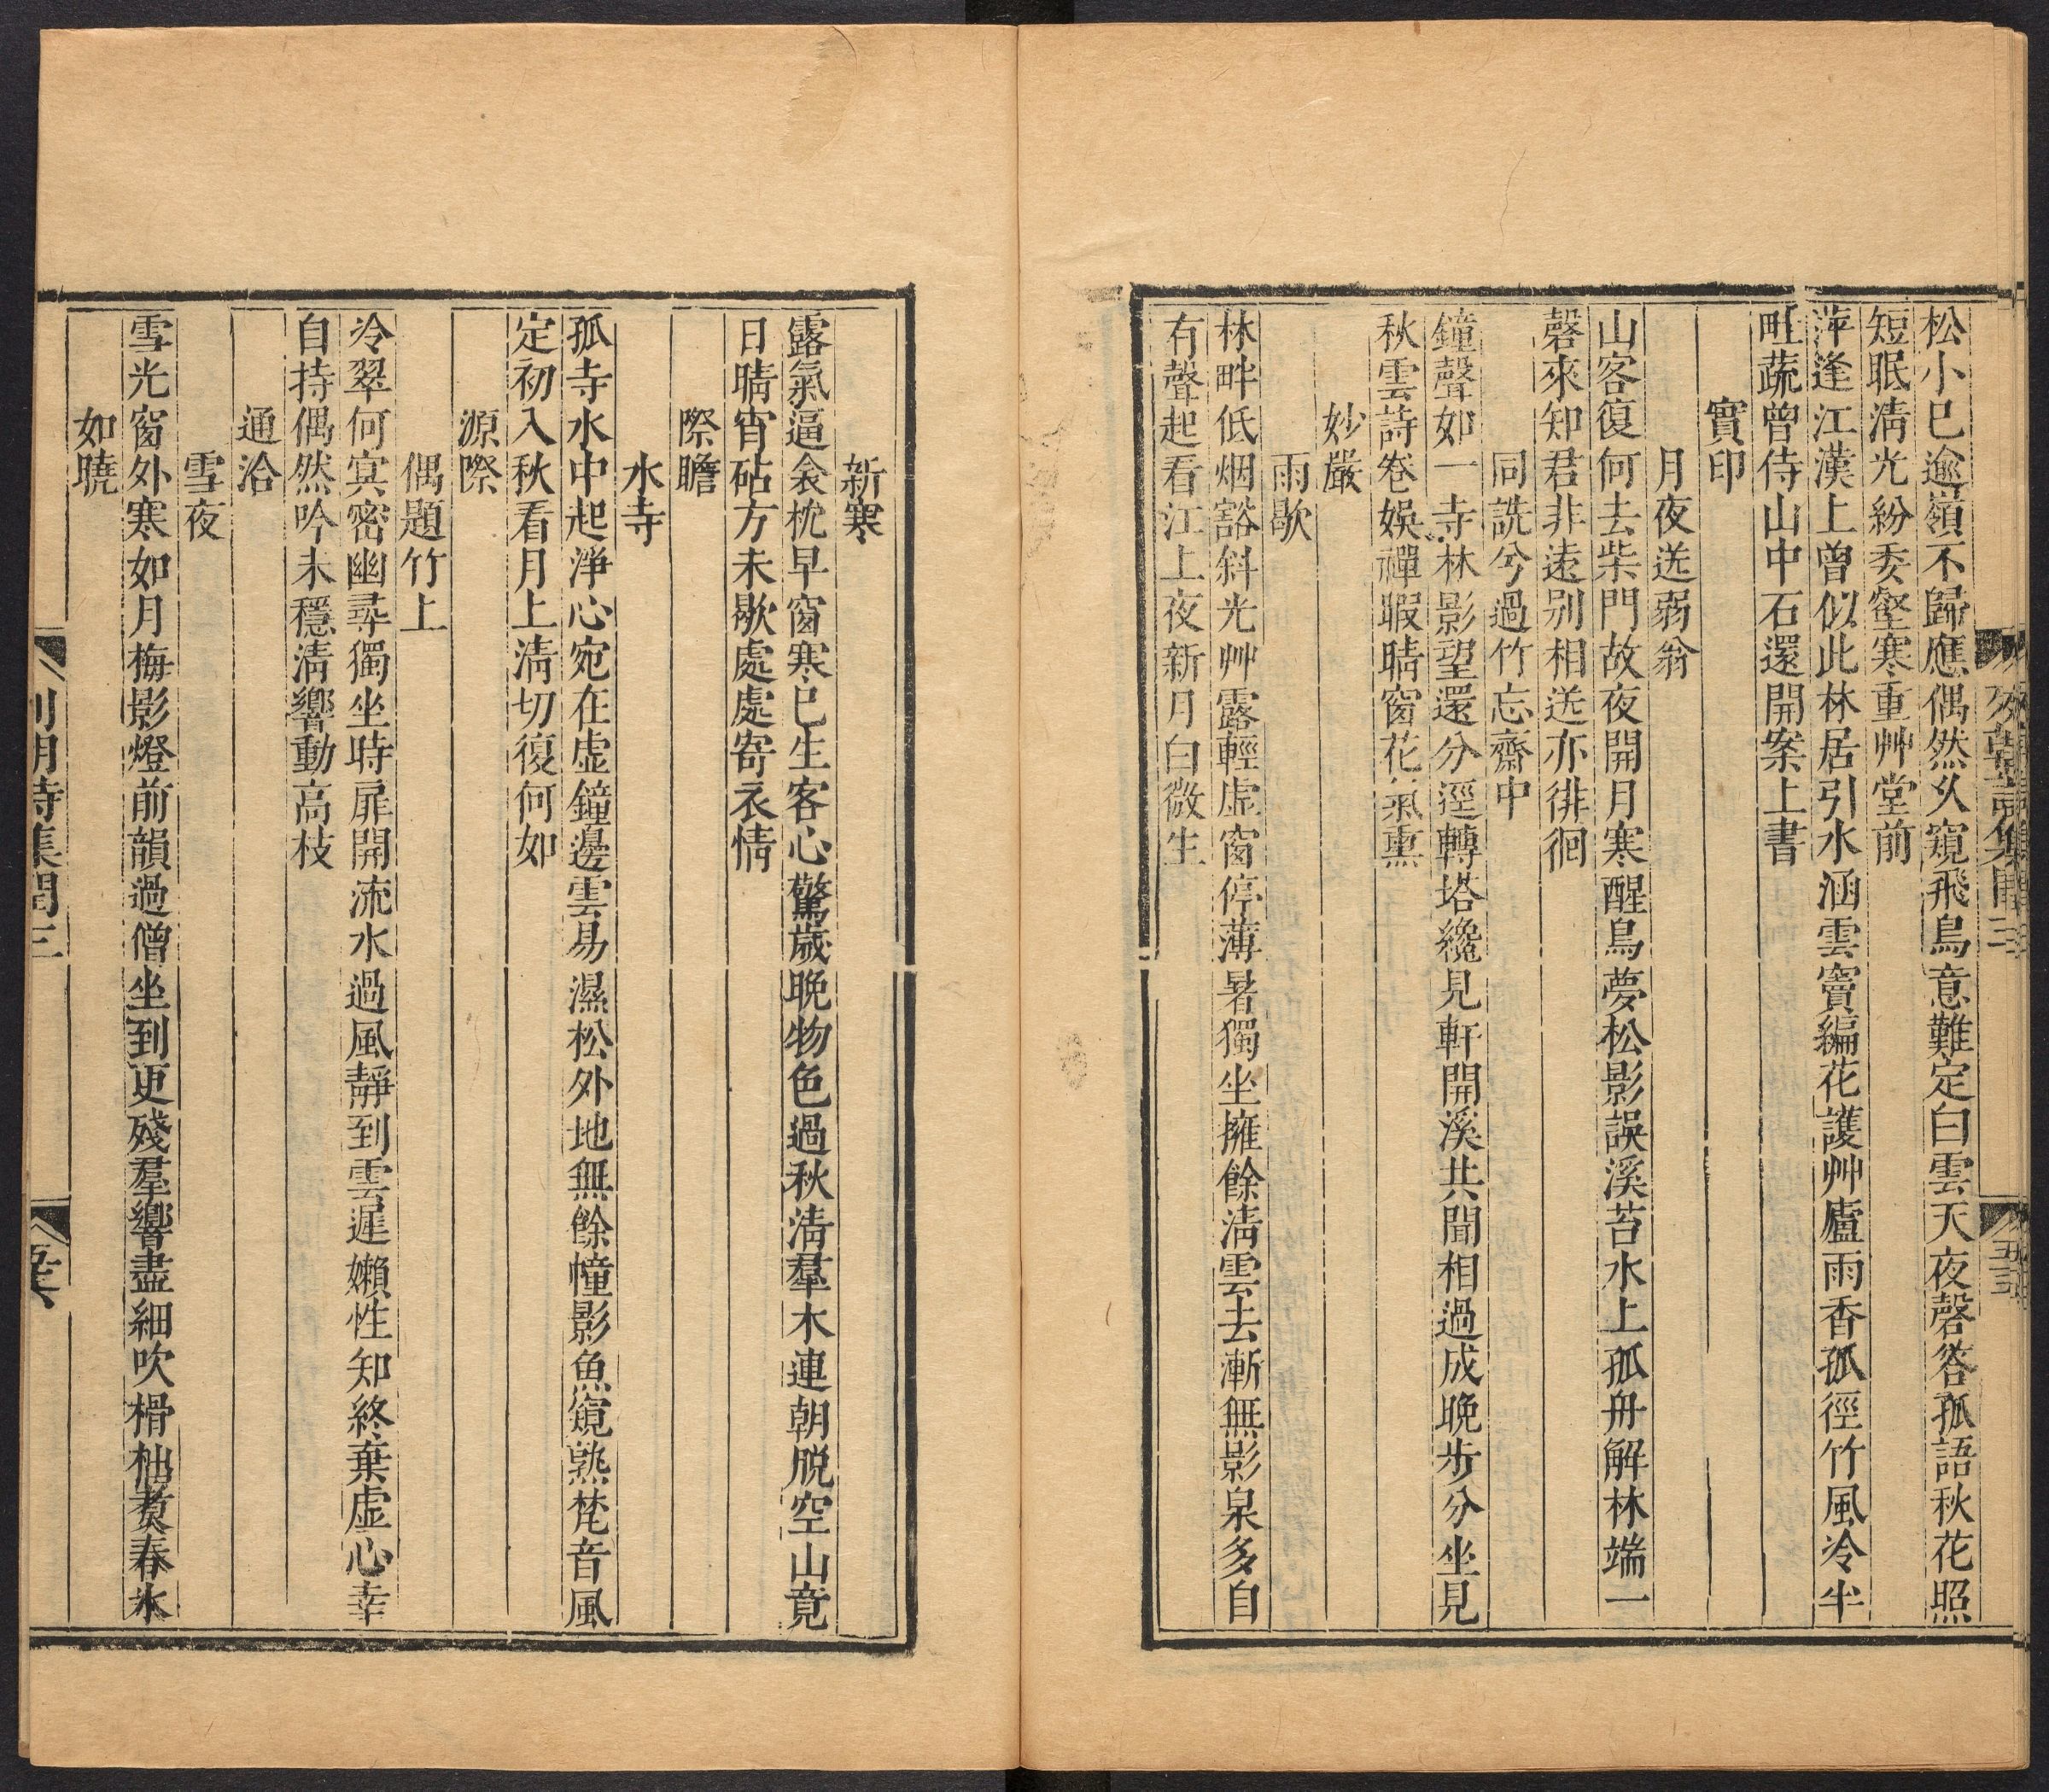 松小已逾嶺不歸應偶然乆窺飛鳥意難定白雲天夜磬答孤語秋花照
短眠淸光紛委壑寒重艸堂前
萍逢江漢上曾似此林居引水涵雲竇編花護艸廬雨香孤徑竹風冷半
畦蔬曾侍山中石還開案上書
實印
月夜送弱翁
山客復何去柴門故夜開月寒醒鳥夢松影誤溪苔水上孤舟解林端一
磬來知君非遠别相送亦徘徊
同詵兮過竹忘齋中
鐘聲如一寺林影望還分逕轉塔纔見軒開溪共聞相過成晚步分坐見
秋雲詩卷娛禪暇晴窗花氣熏
妙嚴
雨歇
林畔低烟豁斜光艸露輕虛窗停薄暑獨坐擁餘淸雲去漸無影泉多自
有聲起看江上夜新月白微生
新寒
露氣逼衾枕早窗寒已生客心驚歲晚物色過秋淸羣木連朝脱空山竟
日晴宵砧方未歇處處寄衣情
際瞻
水寺
孤寺水中起淨心宛在虛鐘邊雲易濕松外地無餘幢影魚窺熟梵音風
定初入秋看月上淸切復何如
源際
偶題竹上
冷翠何寘密幽尋獨坐時扉開流水過風靜到雲遲嬾性知終棄虛心幸
自持偶然吟未穩淸響動高枝
通洽
雪夜
雪光窗外寒如月梅影燈前韻過僧坐到更殘羣響盡細吹榾柮煑春氷
如曉
明詩集閏三